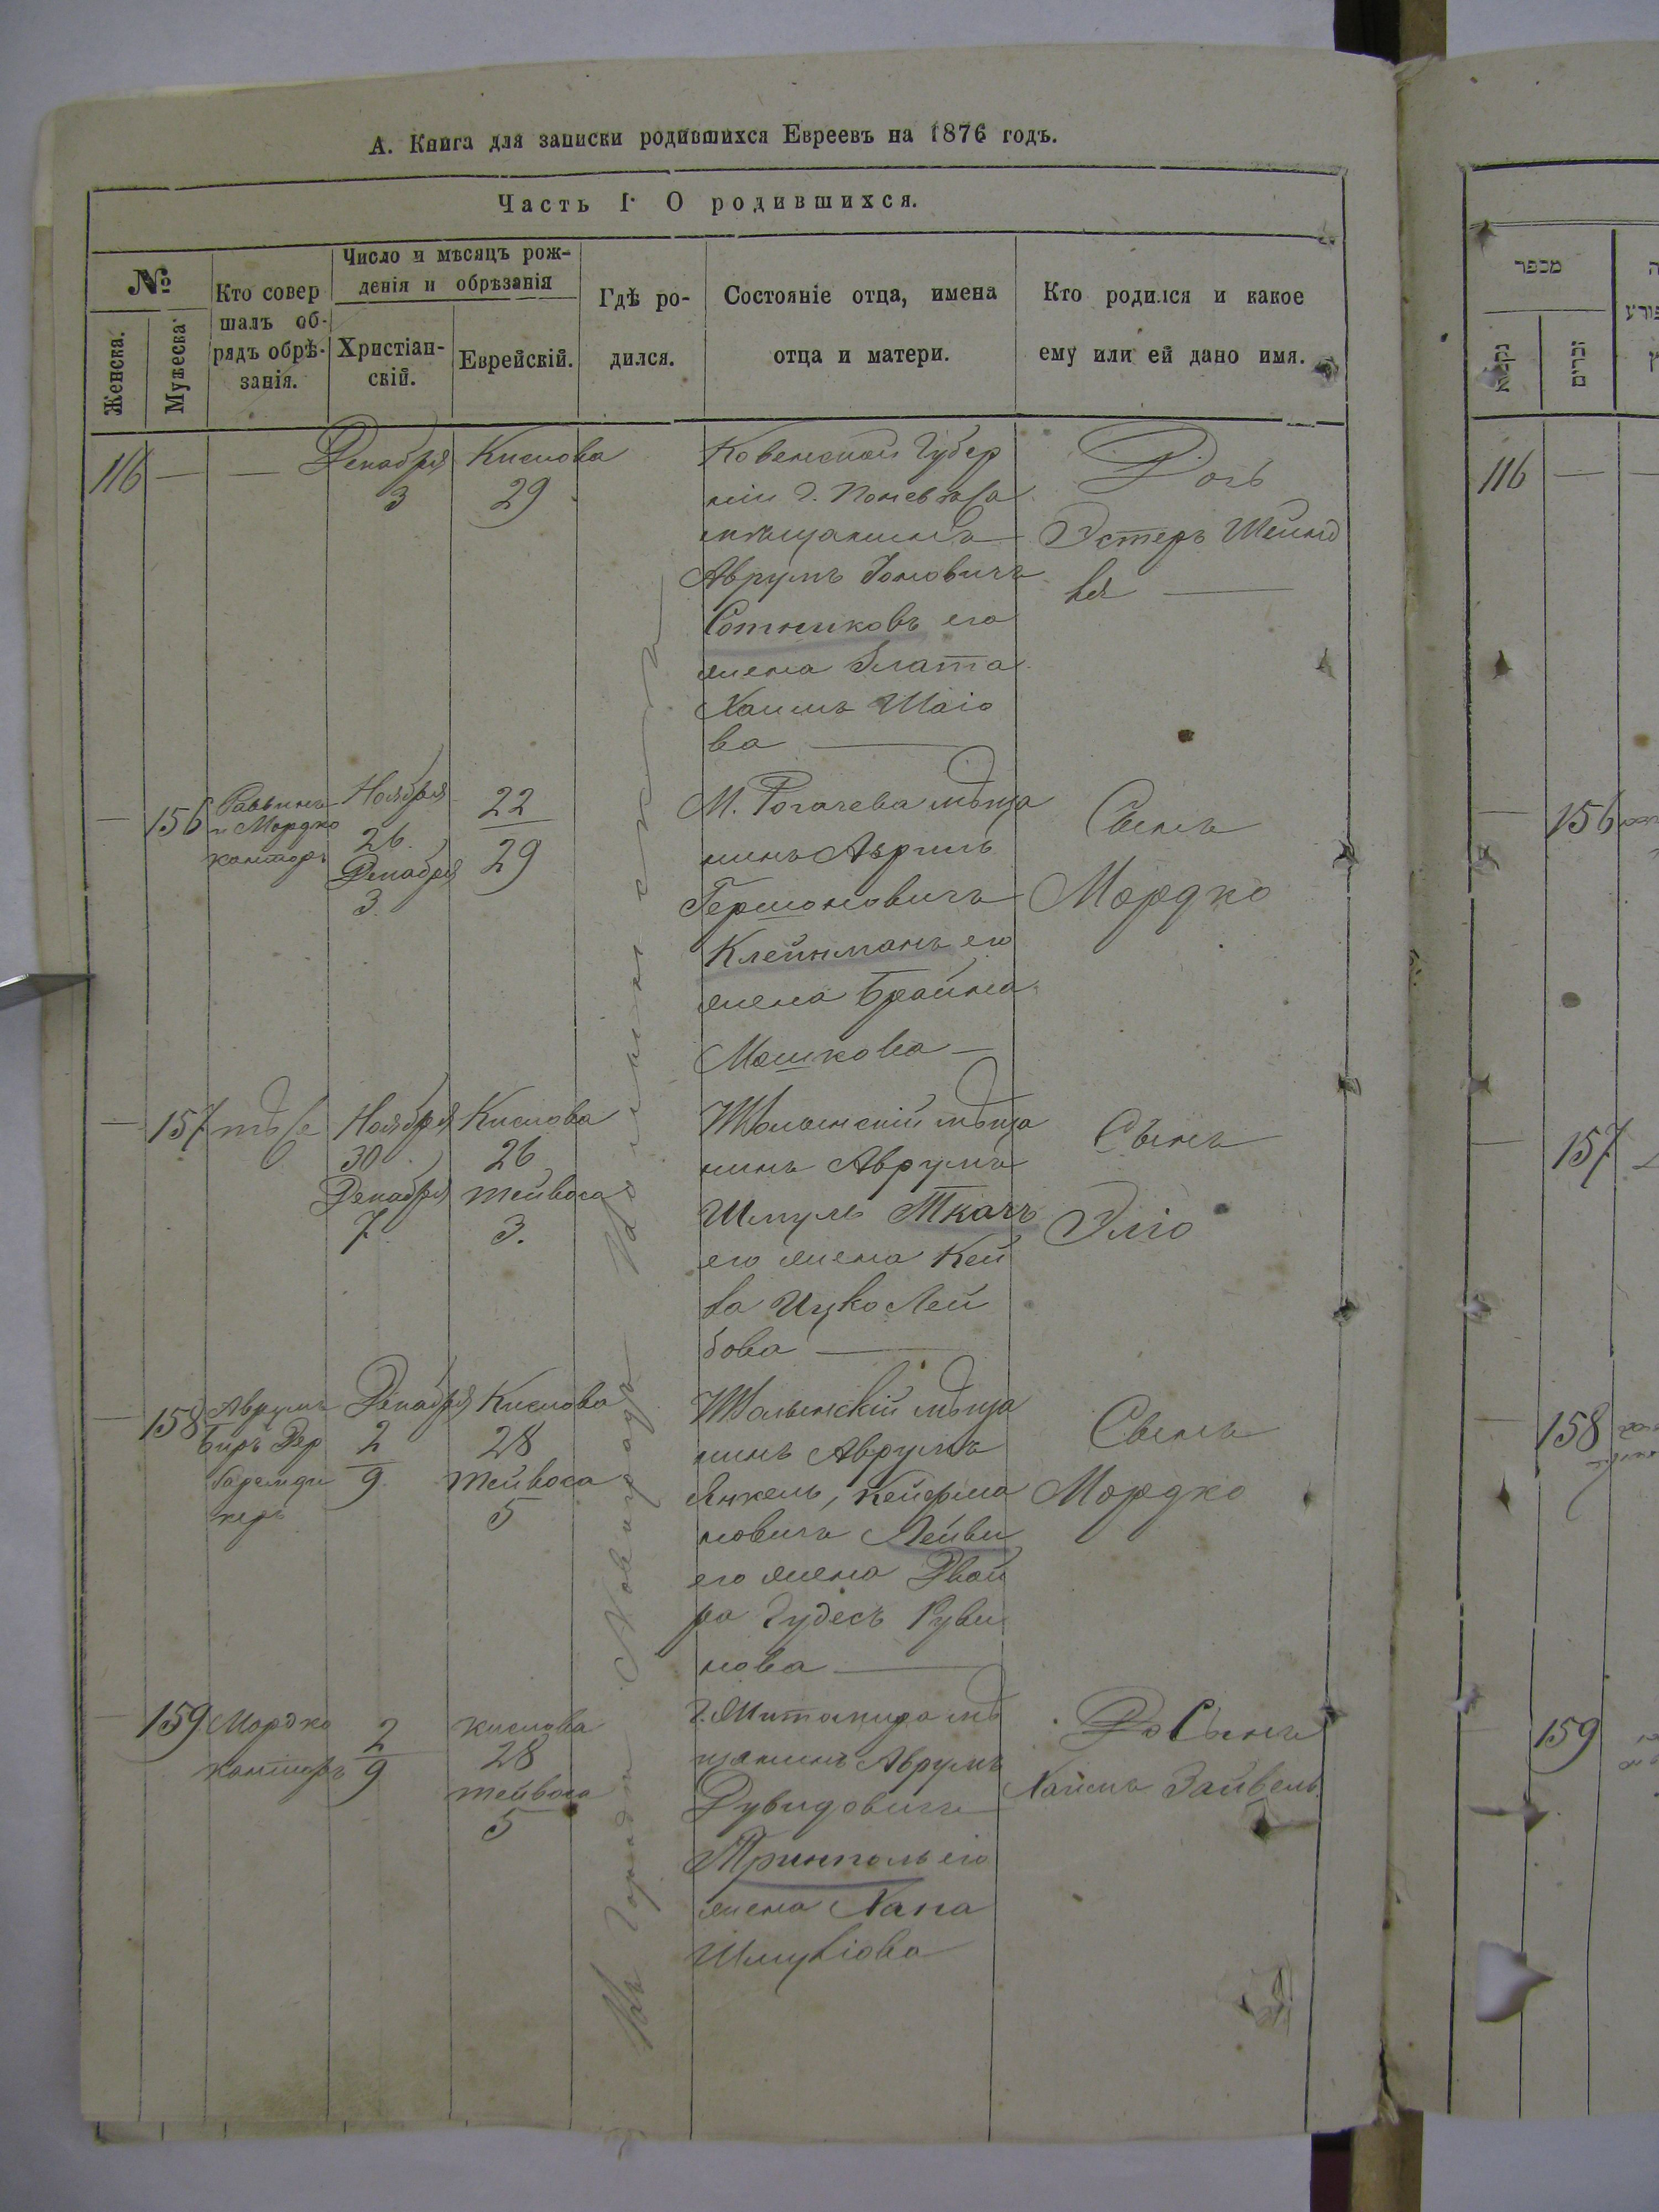 А. Книга для записки родившихся Евреевъ на 1876 годъ.
Часть I. О родившихся.
№
Женска.
Мужеска.
Кто совер
шалъ об-
рядъ обрѣ-
занія.
Число и мѣсяцъ рож-
денія и обрѣзанія
Христіан-
скій.
Еврейскій.
Гдѣ ро-
дился.
Состояніе отца, имена
отца и матери.
Кто родился и какое
ему или ей дано имя.
116 — —
Декабря
3
Кислова
29
Ковенской Губер
ніи г. Поневежа
мѣщанинъ
Аврумъ
Сотниковъ его
жена Злата
Хаимъ Шаіо
ва —
Дочь
Эстеръ Шейнд
ля —
— 156
Раввинъ
и Мордко
канторъ
Ноября
26
Декабря
3.
22
29
М. Рогачева мѣща
нинъ Аврумъ
Гершоновичъ
Клейнманъ его
жена Брайна
Мошкова —
Сынъ
Мордко
— 157
тѣ же
Ноября
30
Декабря
7
Кислова
26
тейвоса
3.
мѣща
нинъ Аврумъ
Шмуль Ткачъ
его жена Кей
ла Ицко Лей
бова —
Сынъ
Эліо
— 158
Аврумъ
Беръ Дер
Декабря
2
9
Кислова
28
тейвоса
5
мѣща
нинъ Аврумъ
Янкель,
новичъ Лейви
его жена Двой
ра Гудесъ Руви
нова —
Сынъ
Мордко
— 159
Мордко
канторъ
2
9
кислова
28
тейвоса
5
г. Житомира мѣ
щанинъ Аврумъ
Дувидовичъ
Тринполь его
жена Хана
Шмуліова
Сынъ
Хаимъ Зайвель.
Въ городѣ Новоградѣ Волынскомъ
מכפר
נקבות
זכרים
116 —
— 156
— 157
— 158
— 159